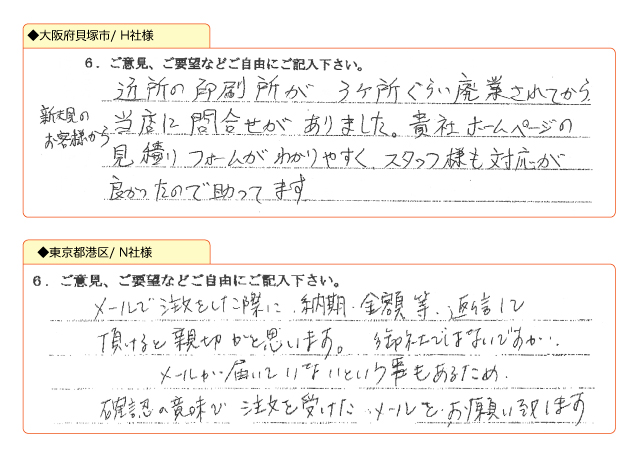 ◆大阪府貝塚市/ H社様
6．ご意見、ご要望などご自由にご記入下さい。
近所の印刷所が 3ヶ所ぐらい廃業されてから
新規の
お客様から
当店に問合せがありました。貴社ホームページの
見積りフォームがわかりやすく、スタッフ様も対応が
良かったので助ってます
◆東京都港区/ N社様
6．ご意見、ご要望などご自由にご記入下さい。
メールで注文をした際に、納期・金額等、返信して
頂けると親切かと思います。 御社ではないですが、
メールが届いていないという事もあるため、
確認の意味で 注文を受けた、メールを、お願い致します